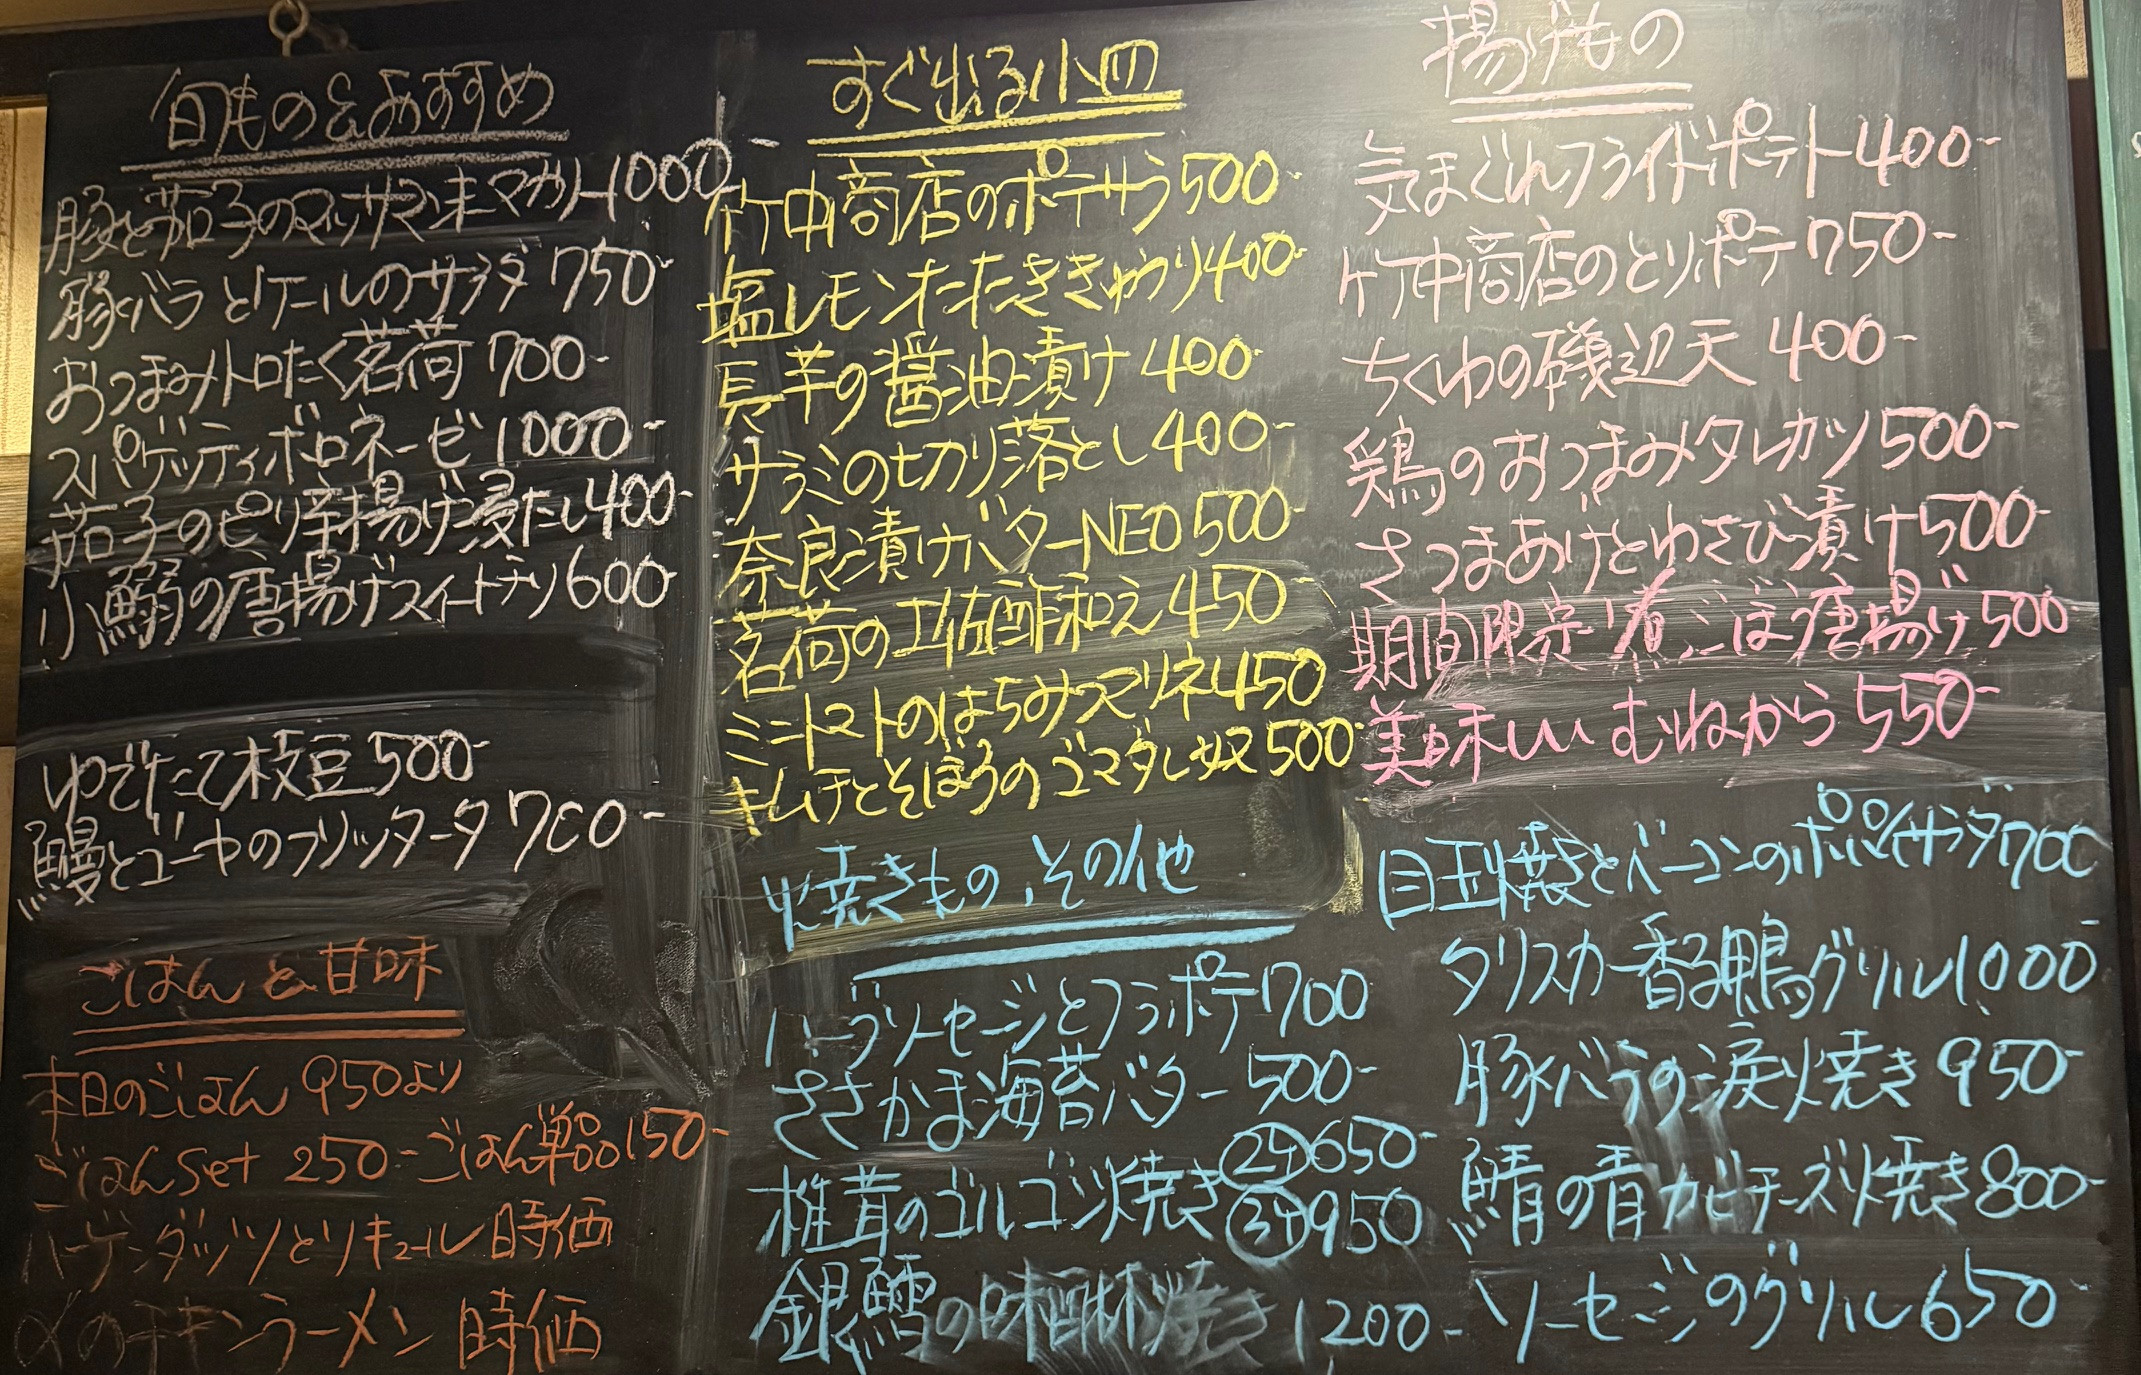 旬もの&おすすめ
豚と茄子のマッサマン味マカリー1000-
豚バラとケールのサラダ 750-
おつまみトロたく茗荷 700-
スパゲッティボロネーゼ 1000-
茄子のピリ辛揚げ浸たし400-
小鰯の唐揚げスイートチリ600-
ゆでたて枝豆500-
鰻とゴーヤのフリッタータ 700-
ごはんと甘味
本日のごはん 950より
ごはんSet 250- ごはん単品150-
ハーゲンダッツとリキュール 時価
〆のチキンラーメン 時価
すぐ出る小皿
竹中商店のポテサラ500-
塩レモンたたききゅうり400-
長芋の醤油漬け 400-
サラミの切り落とし400-
奈良漬けバターNEO 500-
茗荷の土佐酢和え450-
ミニトマトのはちみつマリネ450
キムチとそぼろのゴマダレ奴 500-
揚げもの
気まぐれフライドポテト400-
竹中商店のとりポテ750-
ちくわの磯辺天 400-
鶏のおつまみタレカツ500-
さつまあげとわさび漬け500-
期間限定!煮ごぼう唐揚げ500-
美味しいむねから 550-
焼きもの、その他
ハーブソーセージとフラポテ700
ささかま海苔バター 500-
椎茸のゴルゴンゾ焼き ②4650-
③4950
銀鱈の味醂焼き 1200-
目玉焼きとベーコンのポパイサラダ700
タリスカー香る鴨グリル1000-
豚バラの涙焼き 950-
鯖の青カビチーズ焼き800-
ソーセージのグリル650-